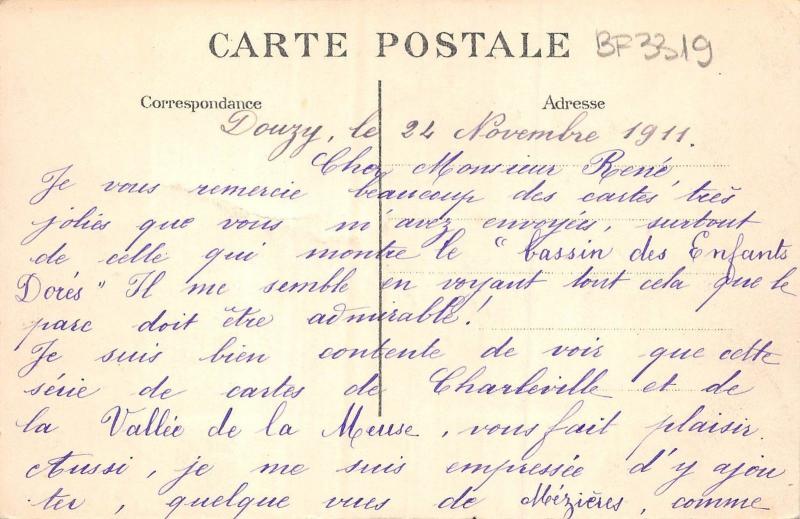 CARTE POSTALE
BF3319
Correspondance
Adresse
Douzy, le 24 Novembre 1911.
Cher Monsieur René,
Je vous remercie beaucoup des cartes très
jolies que vous m'avez envoyées, surtout
de celle qui montre le "bassin des Enfants
Dorés" Il me semble en voyant tout cela que le
parc doit être admirable!
Je suis bien contente de voir que cette
série de cartes de Charleville et de
la Vallée de la Meuse, vous fait plaisir.
Aussi, je me suis empressée d'y ajou
ter, quelque vues de Mézières, comme